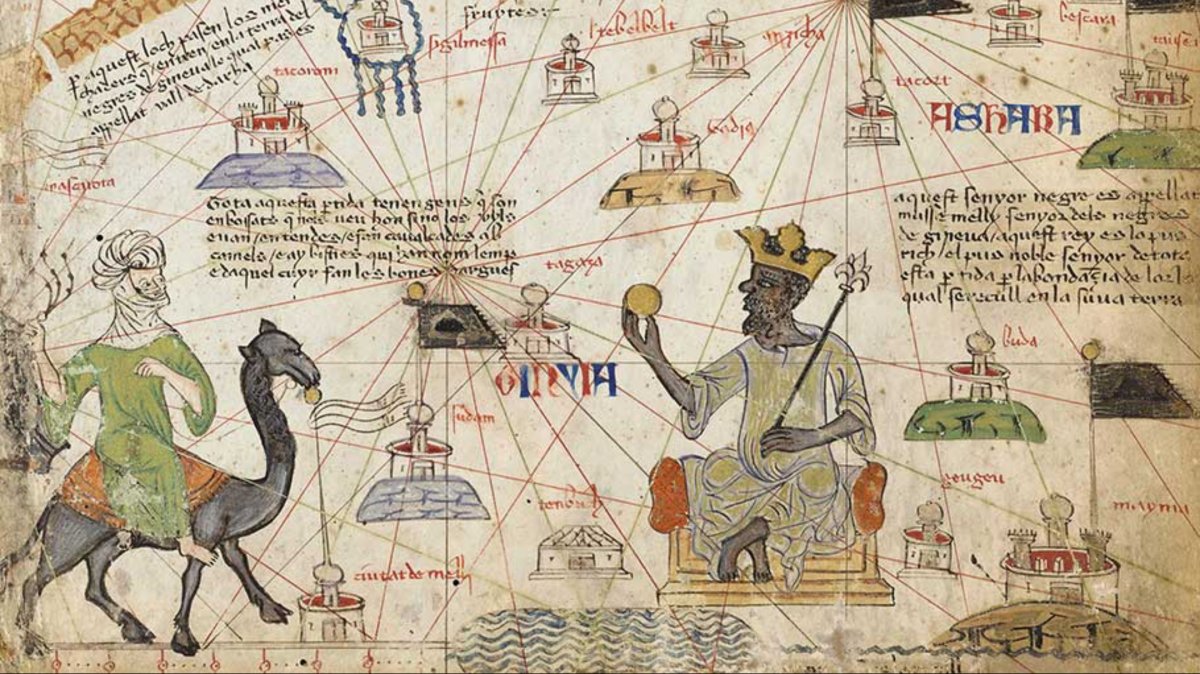 p aquest loch pasen los mer
chaders q̃ entren en la terra del
negres de gineua lo qual pas es
appellat vall de darha
fruytes
sigilmessa
tacorom
tebelbelt
anzicha
bescara
tacort
ASHARA
Tota aquesta ptida tenen gens q̃ son
enbossats q̃ nols veu hom sino los uyls
e van en tendes e fan caualcades ab
camels e ay bisties qui han nom lemp
e daquel cuyr fan les bones dargues
aquest senyor negre es appellat
musse melly senyor dels negres
de gineua aquest rey es lo pus
rich el pus noble senyor de tota
esta ptida p labondançia de lor lo
qual se recull en la suua terra
tagaza
GINYIA
buda
sudam
tenbuch
geugeu
mayma
ciutat de melli